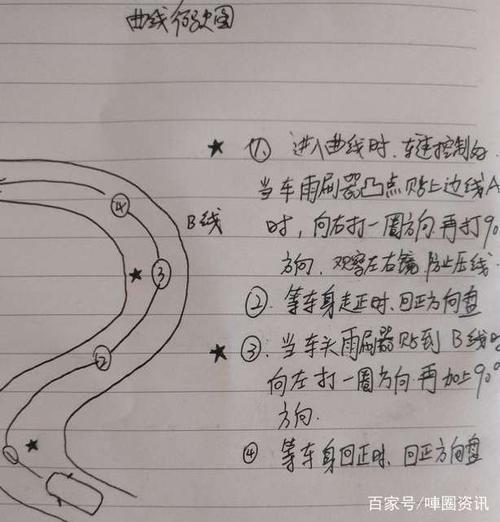 曲线行驶图
★ 1、进入曲线时、车速控制好
当车雨刷器凸点贴上边线A
时，向右打一圈方向再打90
方向、观察左右镜防止压线
② 等车身走正时、回正方向盘
★ ③、当车头雨刷器贴到B线时
向左打一圈方向再加上90°
方向.
④ 等车身回正时、回正方向盘
B线
④
③
②
百家号/呻圈资讯